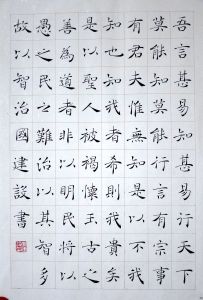 吾言甚易知甚易行天下
莫能知莫能行言有宗事
有君夫惟無知是以不我
知也知我者希則我貴矣
是以聖人被褐懷玉古之
善為道者非以明民將以
愚之民之難治以其智多
故以智治國建設書